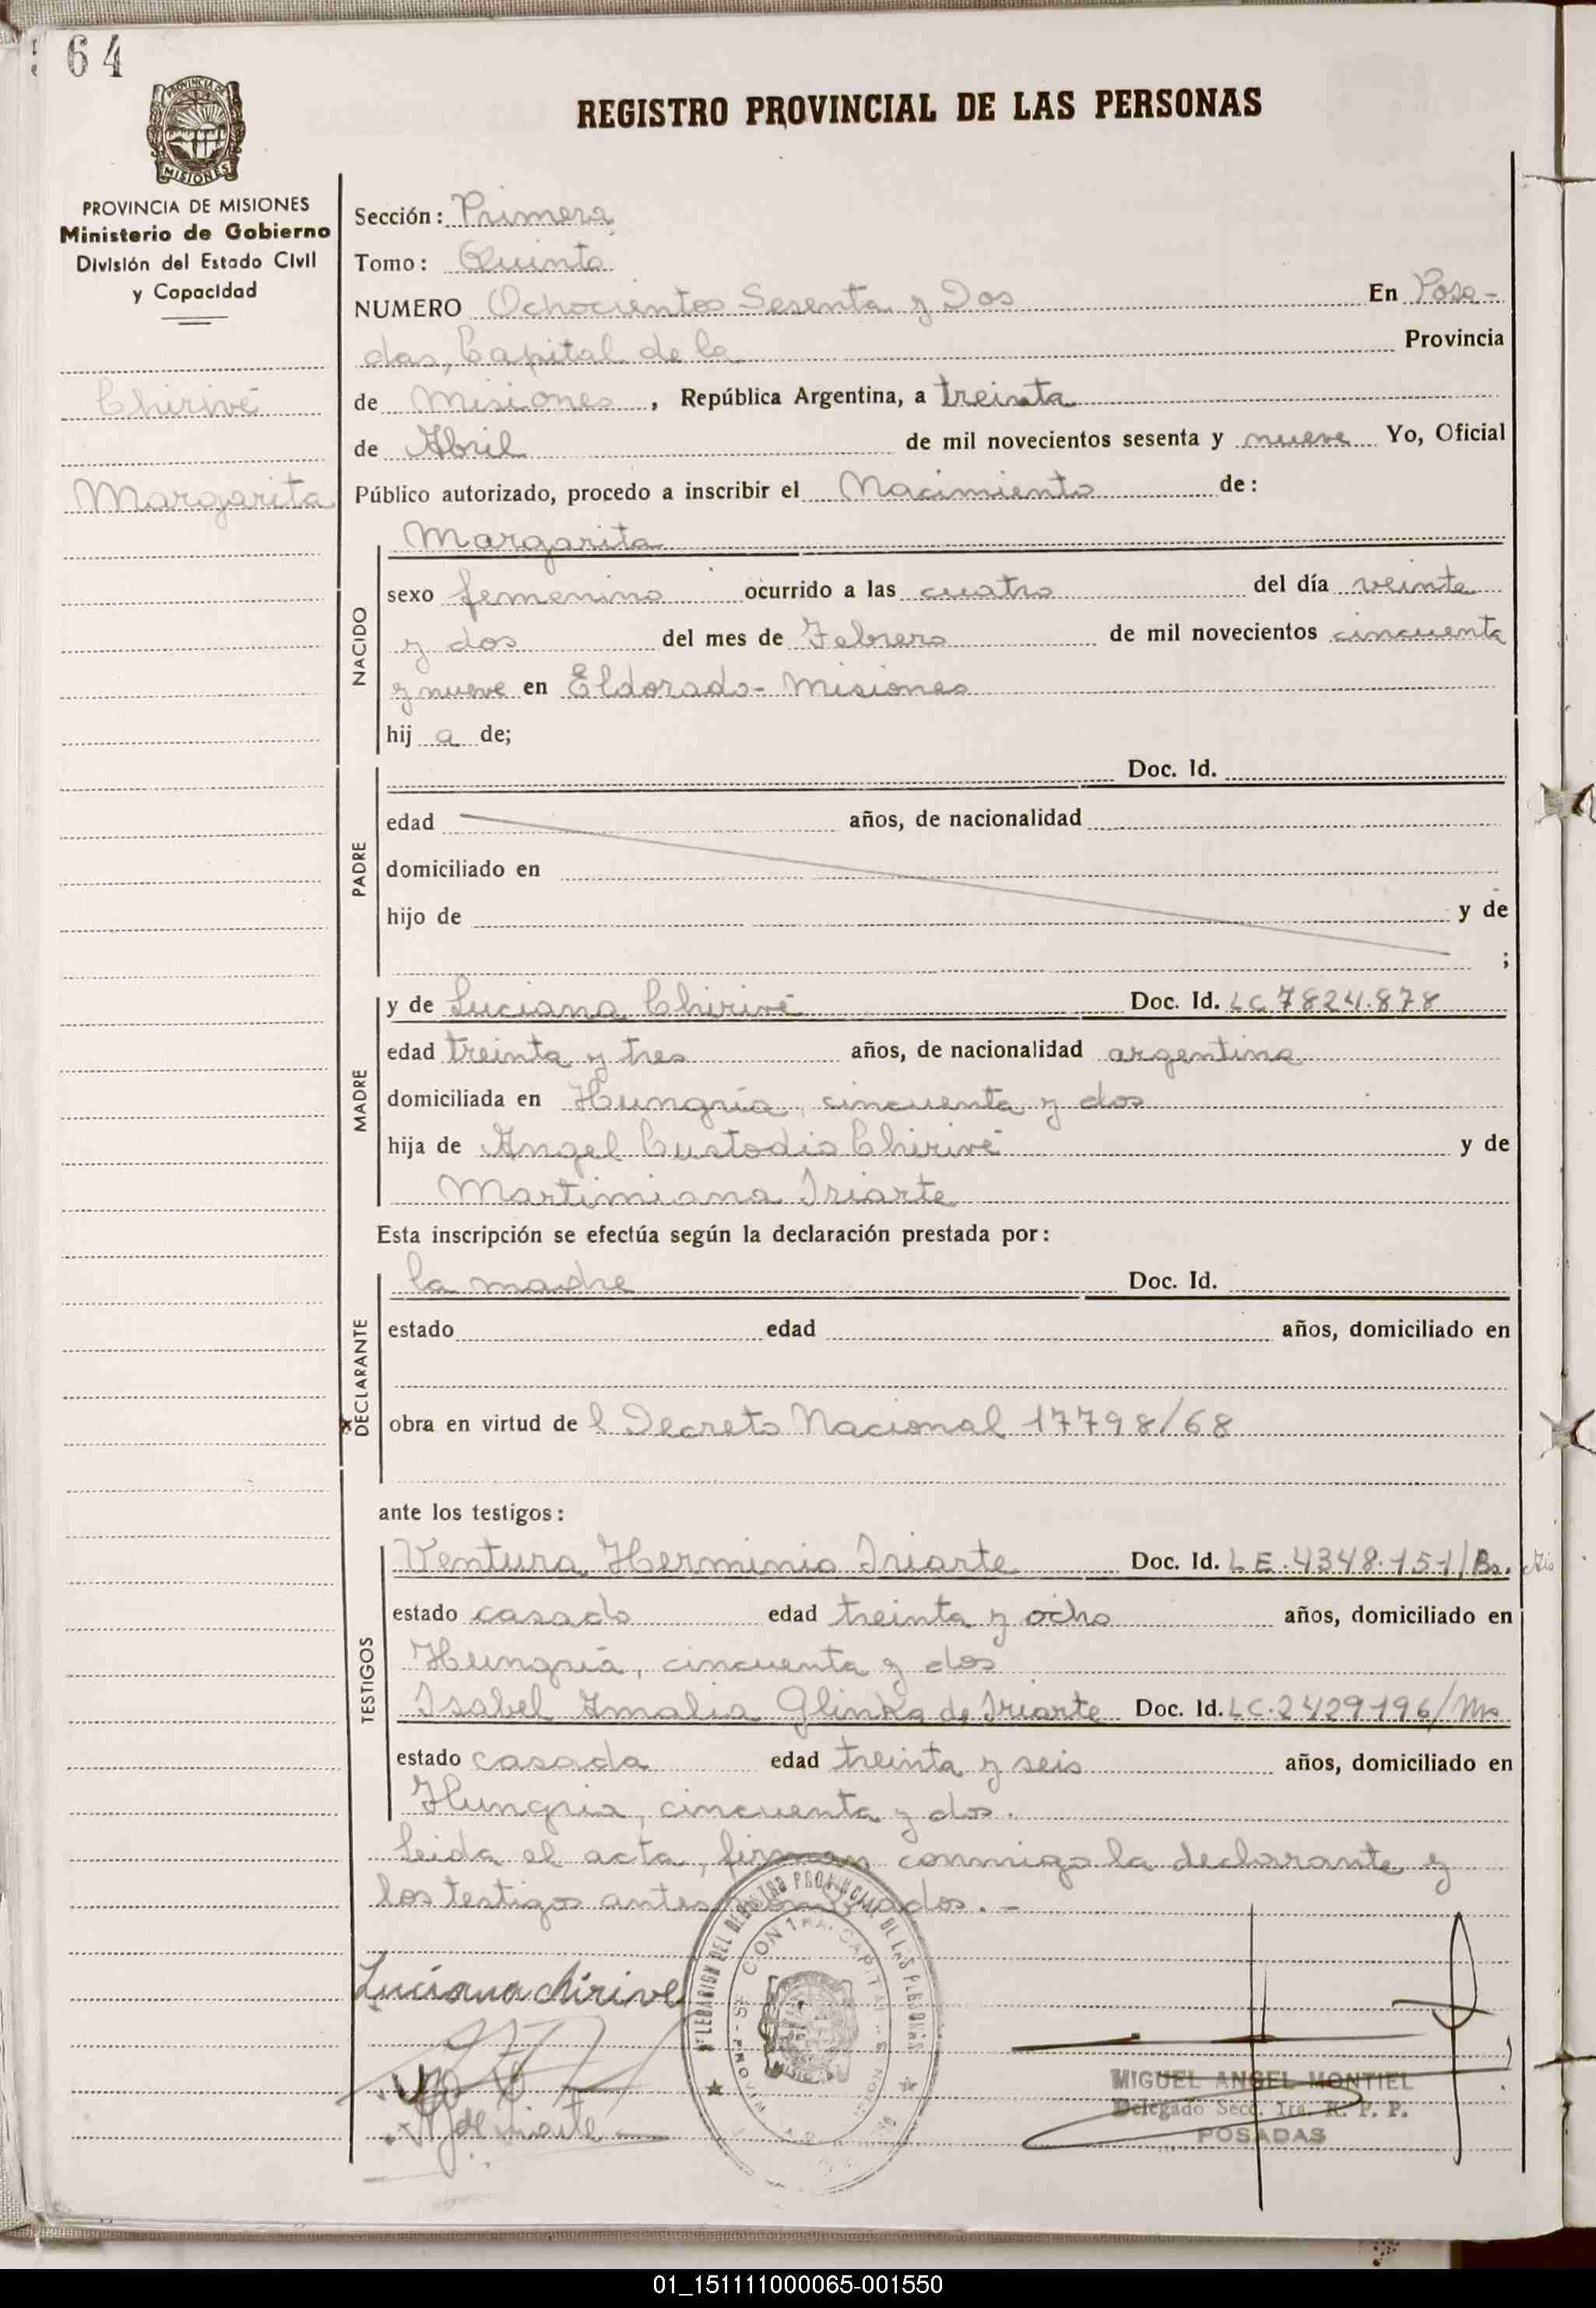 64
REGISTRO PROVINCIAL DE LAS PERSONAS
PROVINCIA DE MISIONES
Ministerio de Gobierno
División del Estado Civil
y Capacidad
Chirivé
Margarita
Sección: Primera
Tomo: Quinto
NUMERO Ochocientos Sesenta y Dos En Posa-
das, Capital de la Provincia
de Misiones, República Argentina, a treinta
de Abril de mil novecientos sesenta y nueve Yo, Oficial
Público autorizado, procedo a inscribir el Nacimiento de:
NACIDO
Margarita
sexo femenino ocurrido a las cuatro del día veinte
y dos del mes de Febrero de mil novecientos cincuenta
y nueve en Eldorado- Misiones
hij a de;
PADRE
Doc. Id.
edad años, de nacionalidad
domiciliado en
hijo de y de
;
MADRE
y de Luciana Chirivé Doc. Id. LC 7824.878
edad treinta y tres años, de nacionalidad argentina
domiciliada en Hungría, cincuenta y dos
hija de Angel Custodio Chirivé y de
Martimiana Iriarte
Esta inscripción se efectúa según la declaración prestada por:
DECLARANTE
la madre Doc. Id.
estado edad años, domiciliado en
obra en virtud de l Decreto Nacional 17798/68
ante los testigos:
TESTIGOS
Ventura Herminio Iriarte Doc. Id. LE.4348.151/Bs. As
estado casado edad treinta y ocho años, domiciliado en
Hungría, cincuenta y dos
Isabel Amalia Glinka de Iriarte Doc. Id. LC.2429196/Ms
estado casada edad treinta y seis años, domiciliado en
Hungria, cincuenta y dos.
Leida el acta, firman conmigo la declarante y
los testigos antes nombrados.-
Luciana chirive
MIGUEL ANGEL MONTIEL
Delegado Secc. 1ra. R. P. P.
POSADAS
01_151111000065-001550